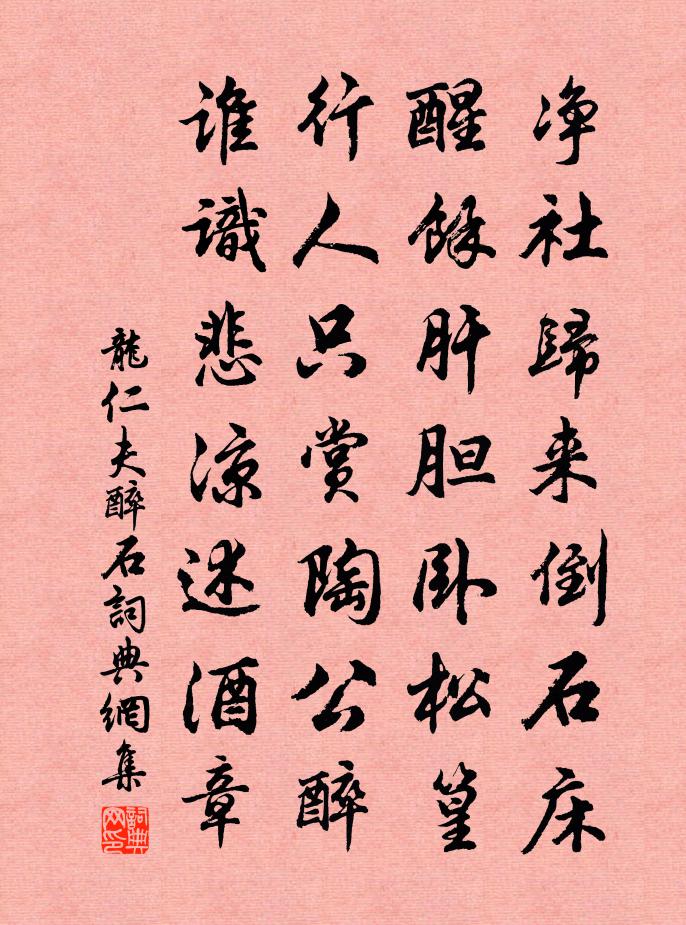 净社歸来倒石床
醒餘肝胆卧松篁
行人只赏陶公醉
谁識悲凉述酒章
龍仁夫醉石詞典網集
詞典网印